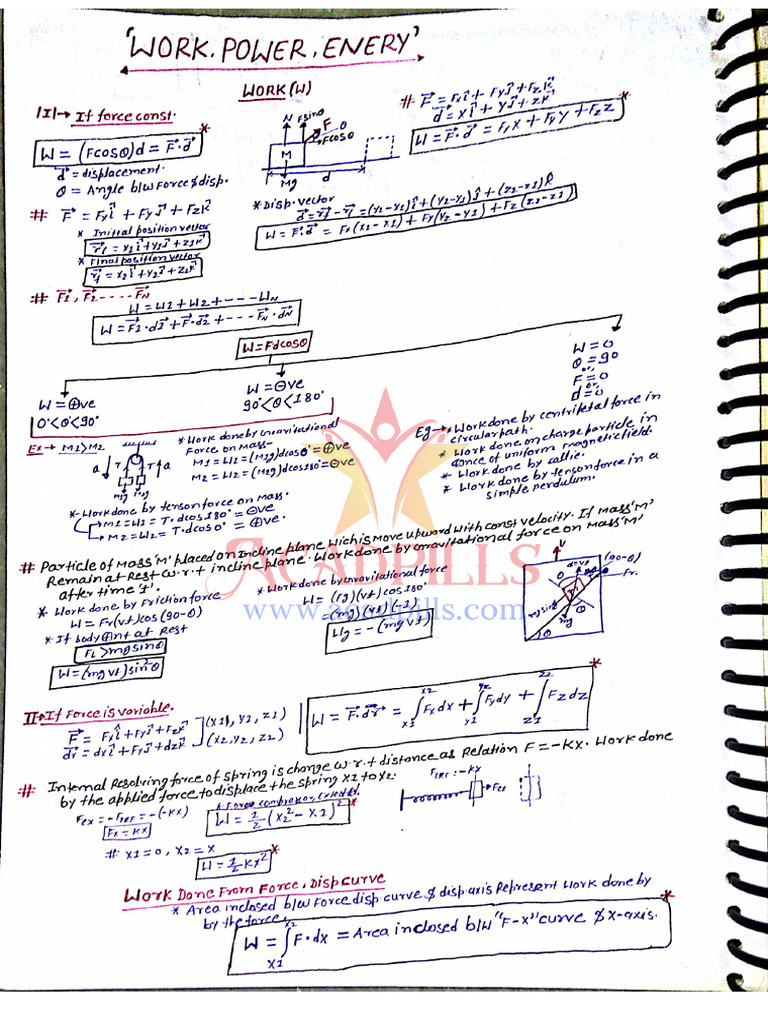 'WORK, POWER, ENERY'
WORK (W)
|I|→ If force const.
W = (Fcosθ)d = F⃗·d⃗
d⃗ = displacement.
θ = Angle b/w Force & disp.
N Fsinθ
F
θ
Fcosθ
M
Mg
d
# F⃗ = Fxî + Fyĵ + Fzk̂
d⃗ = xî + yĵ + zk̂
W = F⃗·d⃗ = Fxx + Fyy + Fzz
# F⃗ = Fxî + Fyĵ + Fzk̂
* Initial position vector
r⃗i = x1î + y1ĵ + z1k̂
* Final position vector
r⃗f = x2î + y2ĵ + z2k̂
* Disp. vector
W = F⃗·d⃗ = Fx(x2-x1) + Fy(y2-y1) + Fz(z2-z1)
# F⃗1, F⃗2 ..... F⃗N
W = W1 + W2 + --- WN
W = F⃗1·d⃗1 + F⃗·d⃗2 + --- F⃗N·d⃗N
W = Fdcosθ
W = ⊕ve
0°<θ<90°
W = ⊖ve
90°<θ<180°
W = 0
θ = 90
or,
F = 0
or,
d = 0
Ex → M1>M2
a T T a
M1g M2g
* Work done by Gravitational
Force on Mass-
M1 = W1 = (M1g)dcos0° = ⊕ve
M2 = W2 = (M2g)dcos180° = ⊖ve
* Work done by tension force on Mass.
M1 = W1 = T·dcos180° = ⊖ve
M2 = W2 = T·dcos0° = ⊕ve.
Eg → * Work done by centripetal force in
circular path.
* Work done on charge particle in
of uniform magnetic field.
* Work done by
* Work done by tension force in a
simple pendulum.
# Particle of Mass 'M' placed on Incline plane which is move upward with const velocity. If Mass 'M'
Remain at Rest w.r.t incline plane. Work done by Gravitational force on Mass 'M'
after time 't'.
* Work done by Friction force
W = Fr(vt)cos(90-θ)
* If body at Rest
FL > mgsinθ
W = (mgvt)sin²θ
* Work done by Gravitational force
= (mg)(vt)(-1)
Wg = -(mgvt)
V
(90-θ)
Fr.
mgsinθ
mg
θ
ACADPILLS
www.acadpills.com
II → If Force is variable.
F⃗ = Fxî + Fyĵ + Fzk̂ ] (x1, y1, z1)
dr⃗ = dxî + dyĵ + dzk̂ ] (x2, y2, z2)
W = F⃗·dr⃗ = ∫x1x2 Fxdx + ∫y1y2 Fydy + ∫z1z2 Fzdz
# Internal Resolving force of spring is change w.r.t distance as Relation F = -Kx. Work done
by the applied force to displace the spring x1 to x2.
Fex = -FIRF = -(-Kx)
Fx = Kx
W = 1/2 (x2² - x1)²
FIRF = -Kx
Fex
# x1 = 0, x2 = x
W = 1/2 Kx²
WORK DONE FROM FORCE, DISP CURVE
* Area inclosed b/w Force disp. curve & disp. axis Represent Work done by
by the force.
W = ∫x1x2 F·dx = Area inclosed b/w "F-x" curve & x-axis.